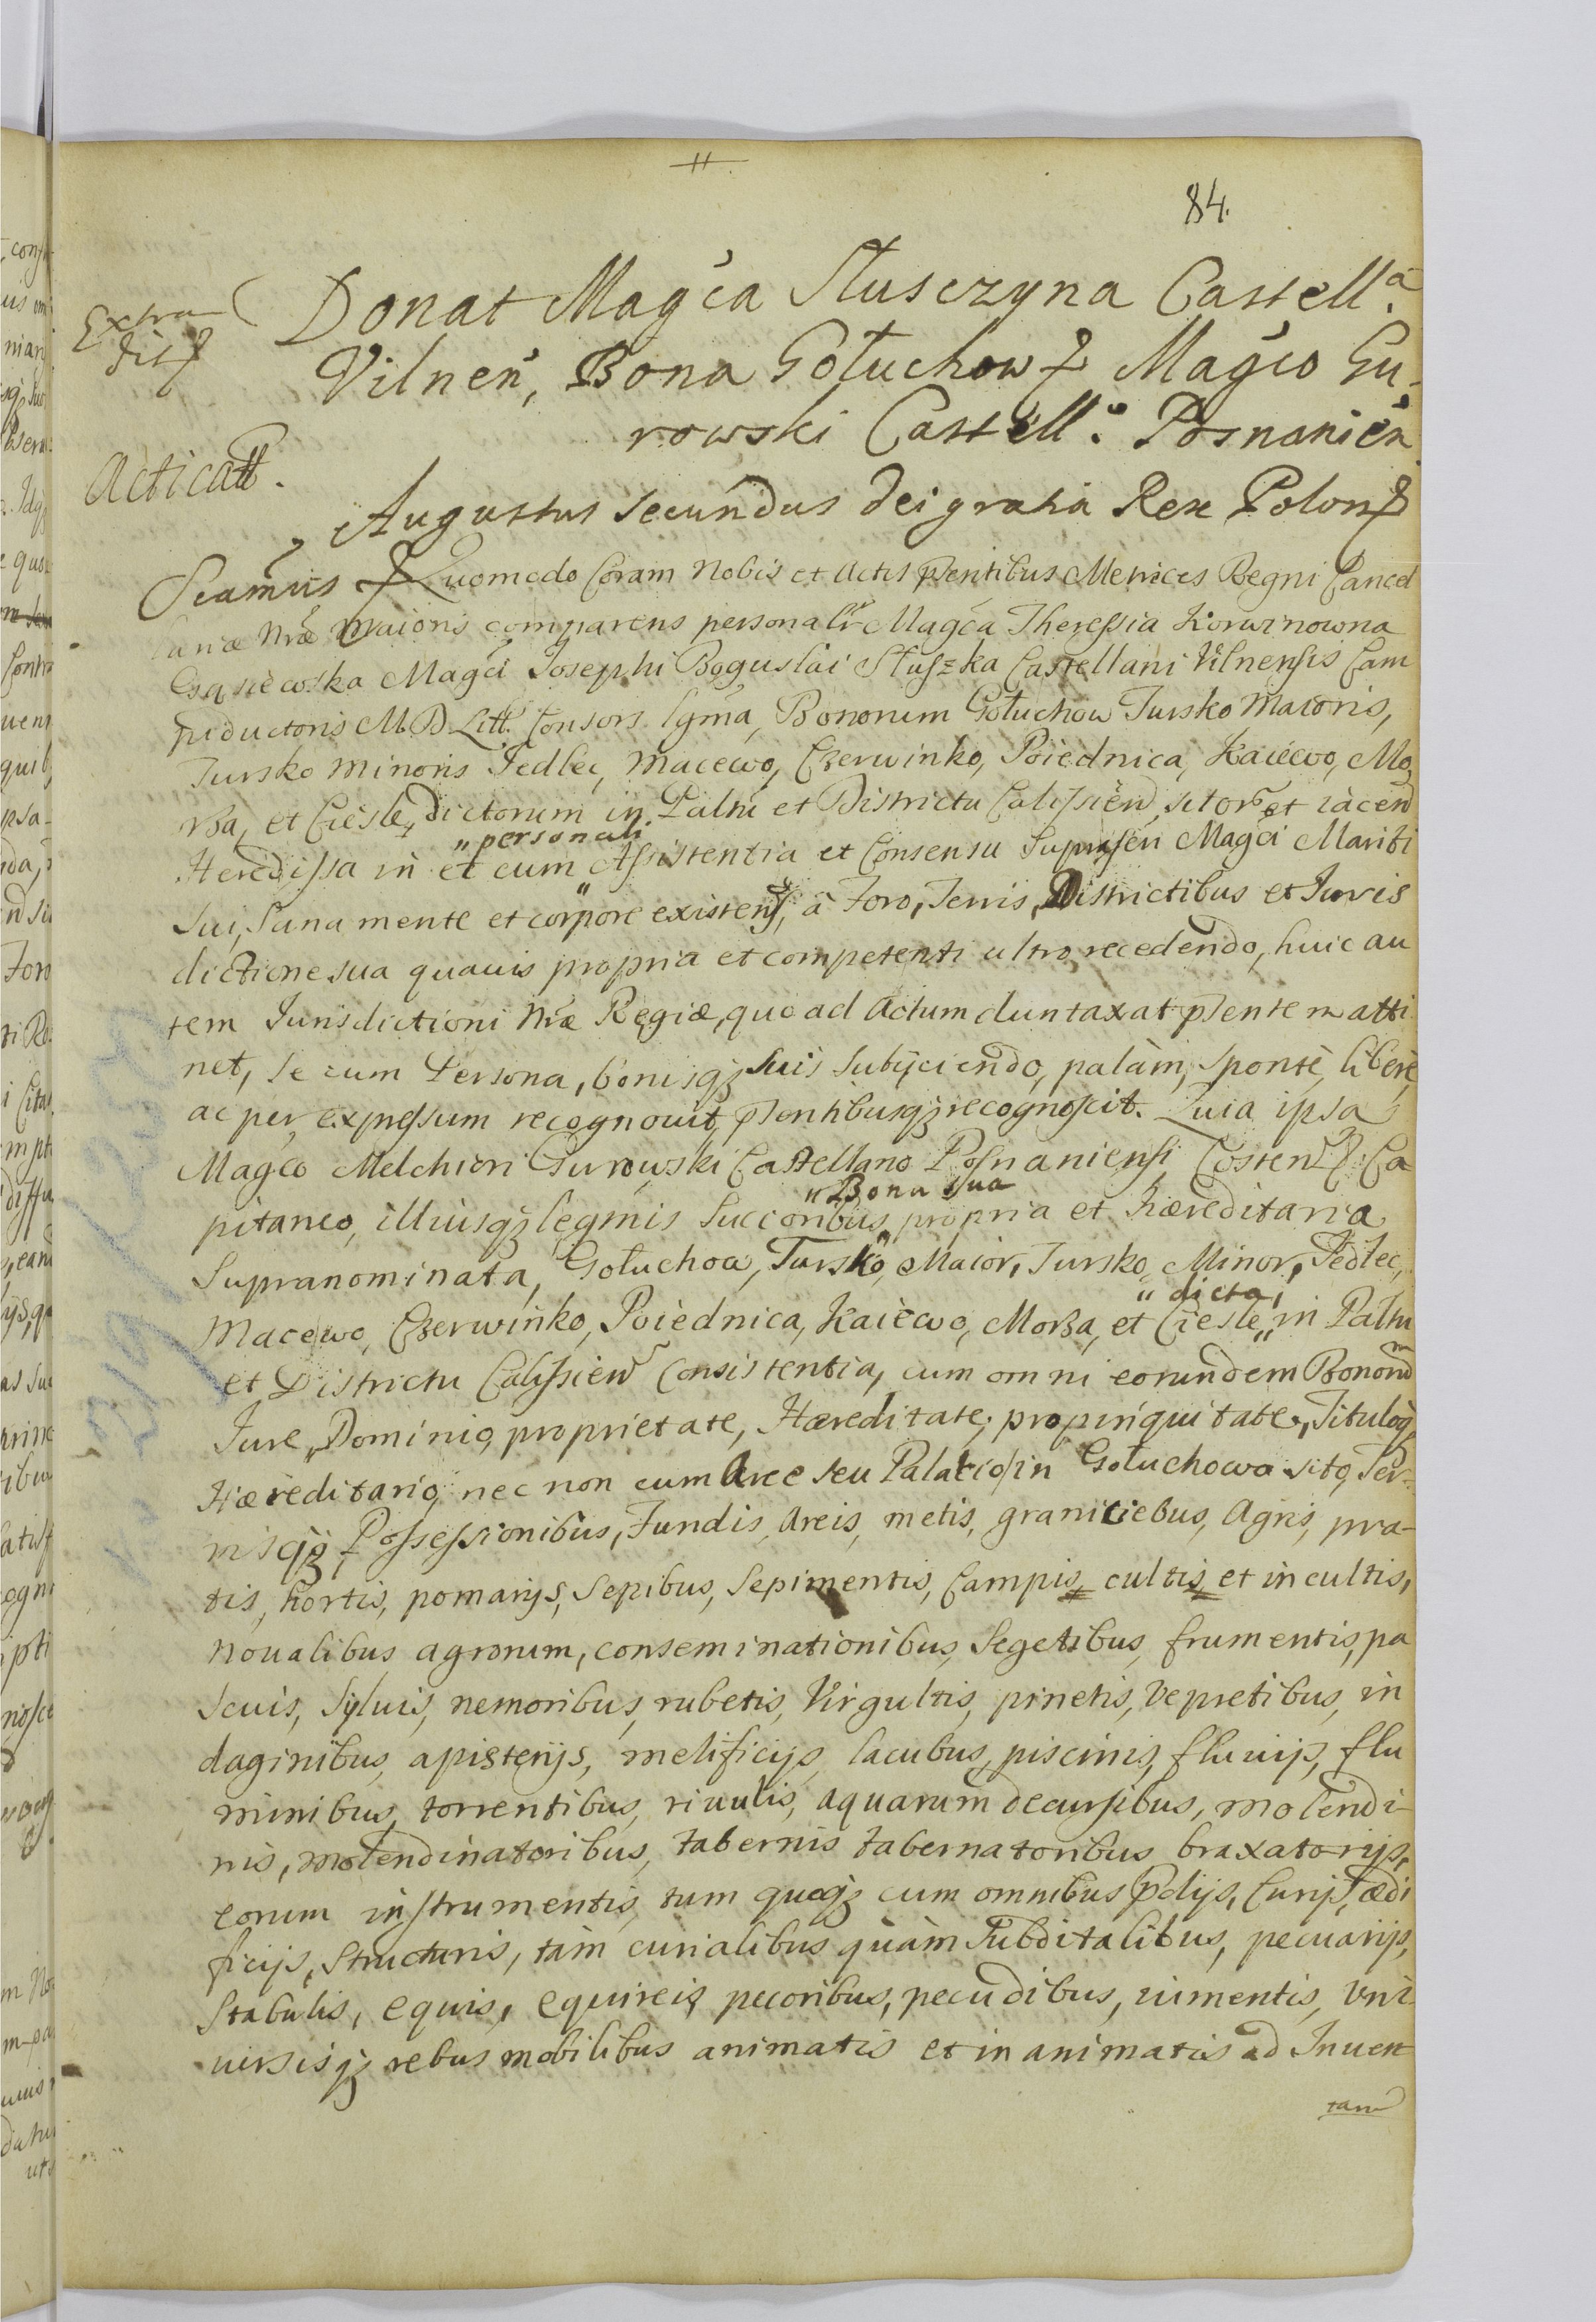 84.
Extra
dit
Acticatt.
Donat Magca Słusczyna Castella.
Vilnen, Bona Gołuchow Magco Gu-
rowski Castello. Posnanien
Augustus Secundus Dei gratia Rex Polon
Scamus Quomodo Coram Nobis et Actis pntibus Metrices Regni Cancel
lariæ Nræ Maioris comparens personalr Magca Theressia Korwinowna
Gąsiewska Magci Josephi Boguslai Słuszka Castellani Vilnensis Cam
piductoris M. D. Litt. Consors lgma, Bonorum Gołuchow Tursko Maioris,
Tursko Minoris Jedlec, Macewo, Czerwinko, Poiednica, Kaiewo, Mo,
rza, et Ciesle, dictorum in Paltu et Districtu Calissien, sitor et iacen
Heredissa in et cum "personali Assistentia et Consensu Suprasen Magci Mariti
sui, Sana mente et corpore existens, à Foro, Terris, Districtibus et Juris
dictione sua quauis propria et competenti ultro recedendo, huic au
tem Jurisdictioni Nræ Regiæ, quo ad Actum duntaxat pntem atti
net, se cum Persona, bonisq suis subijciendo, palàm, sponte, liberè,
ac per expressum recognouit, pntibusq recognoscit. Quia ipsa
Magco Melchiori Gurowski Castellano Posnaniensi Costen Ca
pitaneo, illiusq legmis Succoribus "Bona sua propria et hæreditaria
Supranominata, Gołuchow, Tursko, Maior, Tursko, Minor, Jedlec,
Macewo, Czerwinko, Poiednica, Kaiewo, Morza, et Ciesle "dicta, in Paltu
et Districtu Calissien Consistentia, cum omni eorundem Bonorum
Jure, Dominio, proprietate, Hæreditate, propinquitate, Tituloq
Hæreditario, nec non cum Arce seu Palatio in Gołuchowo sito, Ter-
risq Possessionibus, Fundis, Areis, metis, graniciebus, Agris, pra-
tis, hortis, pomarijs, Sepibus, Sepimentis, Campis cultis et incultis,
Noualibus agrorum, conseminationibus, Segetibus, frumentis, pa
scuis, Syluis, nemoribus, rubetis, Virgultis, pinetis, vepretibus, in
daginibus, apisterijs, melificijs, lacubus, piscinis, fluuijs, flu
minibus, torrentibus, riuulis, aquarum decursibus, molendi-
nis, molendinatoribus, tabernis tabernatoribus braxatorijs,
eorum instrumentis, tum quoq cum omnibus Pdijs, Curijs, ædi
ficijs, Structuris, tàm curialibus quàm Subditalibus, pecuarijs,
Stabulis, equis, equireis, pecoribus, pecudibus, iumentis, vni
uersisq rebus mobilibus animatis et inanimatis ad Inuen
tari